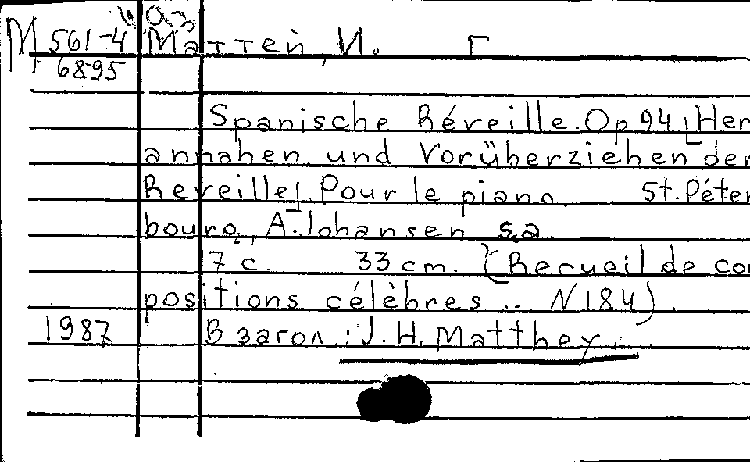 М 561-4 Маттей, И. Г
6895
Spanische Réveille. Op 94 [Her
annahen und Vorüberziehen der
Reveille]. Pour le piano St. Péter
bourg, A. Johansen s.a
7 с. 33 cm. (Recueil de com
positions célèbres .. N 184)
1987 В загол: J. H. Matthey.